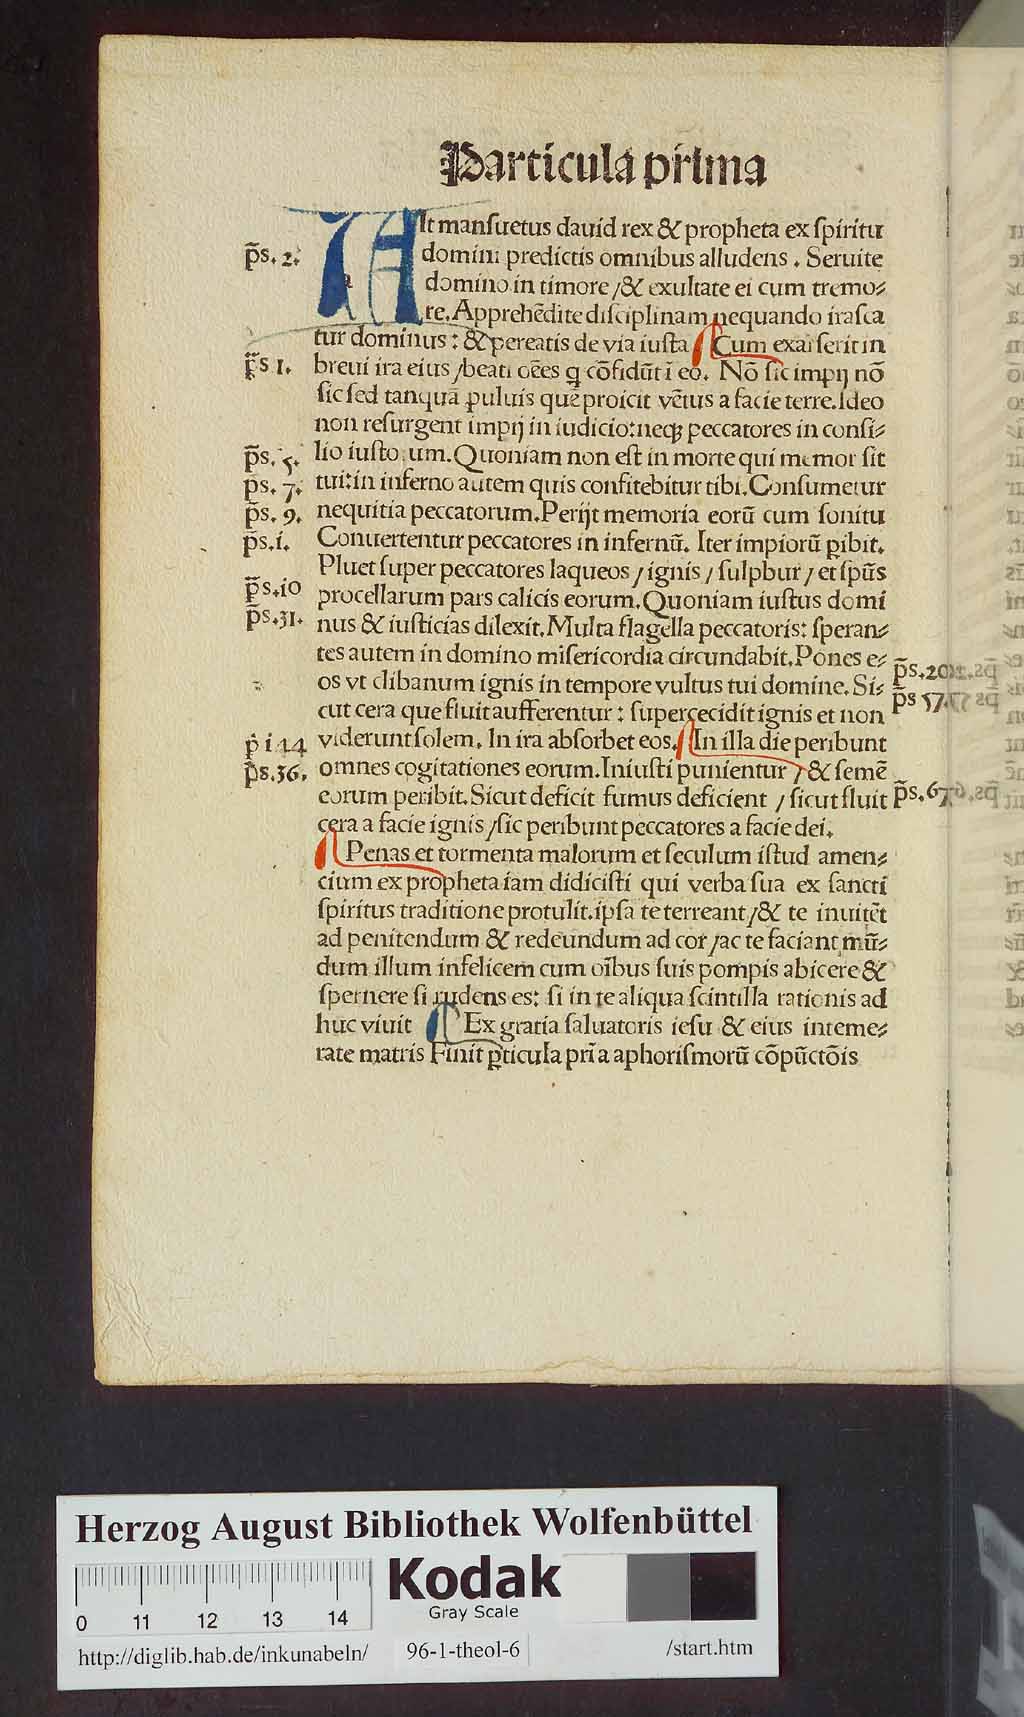 Particula prima
AIt manſuetus dauid rex & propheta ex ſpiritu
domini predictis omnibus alludens . Seruite
domino in timore /& exultate ei cum tremo⸗
re. Apprehēdite diſciplinam nequando iraſca
tur dominus : & pereatis de via iuſta Cum exarſerit in
breui ira eius /beati oēes q cōfidūt ī eo. Nō ſic impij nō
ſic ſed tanquā puluis quē proicit vētus a facie terre. Ideo
non reſurgent impij in iudicio: neqꝫ peccatores in conſi⸗
lio iuſto um. Quoniam non eſt in morte qui memor ſit
tui: in inferno autem quis confitebitur tibi. Conſumetur
nequitia peccatorum. Perijt memoria eorū cum ſonitu
Conuertentur peccatores in infernū. Iter impiorū ꝑibit.
Pluet ſuper peccatores laqueos / ignis / ſulpbur / et ſpūs
procellarum pars calicis eorum. Quoniam iuſtus domi
nus & iuſticias dilexit. Multa flagella peccatoris: ſperan⸗
tes autem in domino miſericordia circundabit. Pones e⸗
os vt clibanum ignis in tempore vultus tui domine. Si⸗
cut cera que fluit aufferentur : ſupercecidit ignis et non
viderunt ſolem. In ira abſorbet eos. In illa die peribunt
omnes cogitationes eorum. Iniuſti punientur / & ſemē
eorum peribit. Sicut deficit fumus deficient / ſicut fluit
cera a facie ignis /ſic peribunt peccatores a facie dei.
Penas et tormenta malorum et ſeculum iſtud amen⸗
cium ex propheta iam didiciſti qui verba ſua ex ſancti
ſpiritus traditione protulit. ipſa te terreant /& te inuitēt
ad penitendum & redeundum ad cor /ac te faciant mū⸗
dum illum infelicem cum oībus ſuis pompis abicere &
ſpernere ſi rudens es: ſi in te aliqua ſcintilla rationis ad
huc viuit Ex gratia ſaluatoris ieſu & eius inteme⸗
rate matris Finit ꝑticula prīa aphoriſmorū cōpūctōis
p̄s. 2.
p̄s 1.
p̄s. 5.
p̄s. 7.
p̄s. 9.
p̄s. i.
p̄s. 10
p̄s. 31.
p i 14
p̄s. 36.
p̄s. 20
p̄s 57.
p̄s. 67
Herzog August Bibliothek Wolfenbüttel
0 11 12 13 14
Kodak
Gray Scale
http://diglib.hab.de/inkunabeln/ 96-1-theol-6 /start.htm